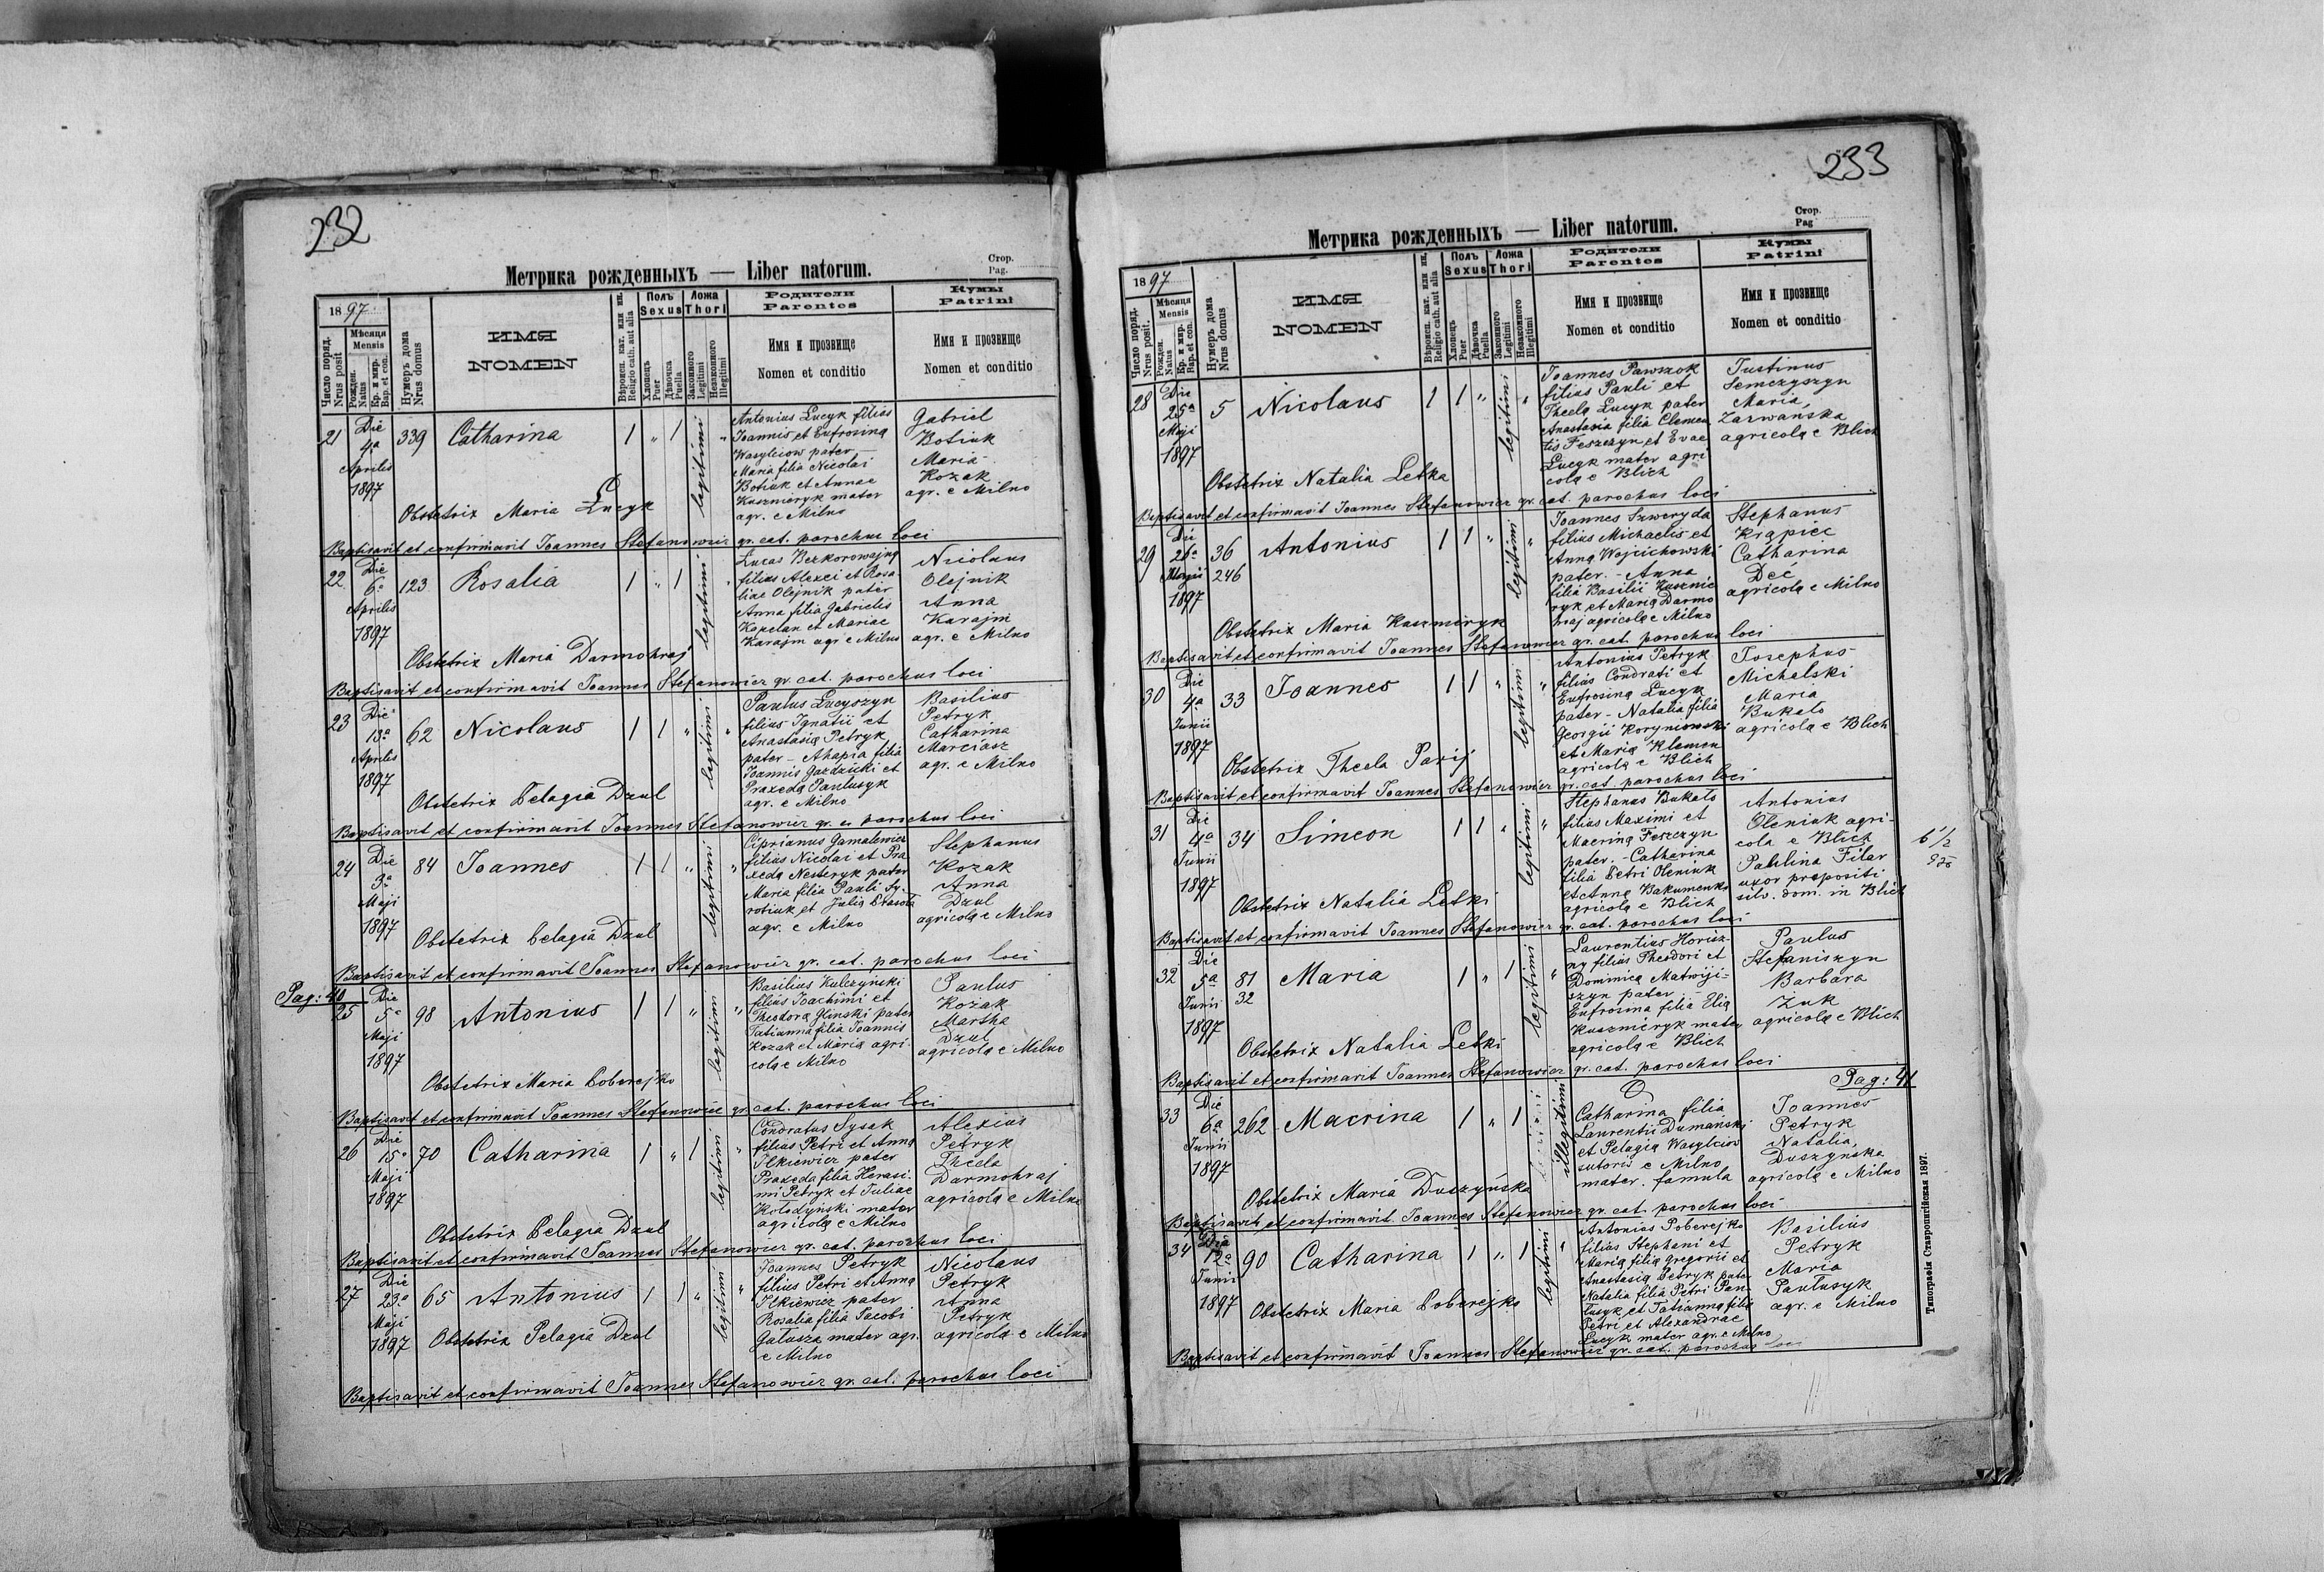 232
Метрика рожденныхъ — Liber natorum.
Стор.
Pag.
1897
Число поряд.
Nrus posit
Мѣсяця
Mensis
Рожден.
Natus
Кр. и мир.
Bap. et con.
Нумеръ дома
Nrus domus
ИМЯ
NOMEN
Вѣроисп. кат. или ин.
Religio cath. aut alia
Полъ
Sexus
Хлопецъ
Puer
Дѣвочка
Puella
Ложа
Thori
Законного
Legitimi
Незаконного
Illegitimi
Родители
Parentes
Имя и прозвище
Nomen et conditio
Кумы
Patrini
Имя и прозвище
Nomen et conditio
21 Die 4a Aprilis 1897 339 Catharina 1 " 1 legitimi "
Antonius Lucyk filius
Joannis et Eufrosina
Wasylciow pater –
Maria filia Nicolai
Botiuk et Annae
Kuszmiryk mater
agr. e Milno
Gabriel
Botiuk
Maria
Kozak
agr. e Milno
Obstetrix Maria Łucyk
Baptisavit et confirmavit Joannes Stefanowicz gr. cat. parochus loci
22 Die 6a Aprilis 1897 123 Rosalia 1 " 1 legitimi "
Lucas Bezkorowajny
filius Alexei et Rosa-
liae Olejnik pater
Anna filia Gabrielis
Kapelan et Mariae
Karajm agr e Milno
Nicolaus
Olejnik
Anna
Karajm
agr. e Milno
Obstetrix Maria Darmohraj
Baptisavit et confirmavit Joannes Stefanowicz gr. cat. parochus loci
23 Die 13a Aprilis 1897 62 Nicolaus 1 1 " legitimi "
Paulus Lucyszyn
filius Ignatii et
Anastasia Petryk
pater – Ahapia filia
Joannis Gazdzicki et
Praxeda Pautusyk
agr. e Milno
Basilius
Petryk
Catharina
Marciasz
agr. e Milno
Obstetrix Pelagia Dzul
Baptisavit et confirmavit Joannes Stefanowicz gr. c. parochus loci
24 Die 3a Maji 1897 84 Joannes 1 1 " legitimi "
Ciprianus Gamalewicz
filius Nicolai et Pra-
xeda Nesteryk pater
Maria filia Pauli Sy-
rotiuk et Julia
agr. e Milno
Stephanus
Kozak
Anna
Dzul
agricola e Milno
Obstetrix Pelagia Dzul
Baptisavit et confirmavit Joannes Stefanowicz gr. cat. parochus loci
Pag: 40
25 Die 5a Maji 1897 98 Antonius 1 1 " legitimi "
Basilius Kulczynski
filius Joachimi et
Theodora Glinski pater
Tatianna filia Joannis
Kozak et Maria agri-
cola e Milno
Paulus
Kozak
Martha
Dzul
agricola e Milno
Obstetrix Maria Poberejko
Baptisavit et confirmavit Joannes Stefanowicz gr. cat. parochus loci
26 Die 15a Maji 1897 70 Catharina 1 " 1 legitimi "
Condratus Sysak
filius Petri et Anna
Ilkiewicz pater
Praxeda filia Herasi-
mi Petryk et Juliae
Kolodynski mater
agricola e Milno
Alexius
Petryk
Thecla
Darmohraj
agricola e Milno
Obstetrix Pelagia Dzul
Baptisavit et confirmavit Joannes Stefanowicz gr. cat. parochus loci
27 Die 23a Maji 1897 65 Antonius 1 1 " legitimi "
Joannes Petryk
filius Petri et Anna
Ilkiewicz pater
Rosalia filia Jacobi
Gatusza mater agr.
e Milno
Nicolaus
Petryk
Anna
Petryk
agricola e Milno
Obstetrix Pelagia Dzul
Baptisavit et confirmavit Joannes Stefanowicz gr. cat. parochus loci
233
Метрика рожденныхъ — Liber natorum.
Стор.
Pag
1897
Число поряд.
Nrus posit.
Мѣсяця
Mensis
Рожден.
Natus
Кр. и мир.
Bap. et con.
Нумеръ дома
Nrus domus
ИМЯ
NOMEN
Вѣроисп. кат. или ин.
Religio cath. aut alia
Полъ
Sexus
Хлопецъ
Puer
Дѣвочка
Puella
Ложа
Thori
Законного
Legitimi
Незаконного
Illegitimi
Родители
Parentes
Имя и прозвище
Nomen et conditio
Кумы
Patrini
Имя и прозвище
Nomen et conditio
28 Die 25a Maji 1897 5 Nicolaus 1 1 " legitimi "
Joannes Pawszok
filius Pauli et
Thecla Lucyk pater
Anastasia filia Clemen
tis Feszczyn et Evae
Lucyk mater agri
cola e Blich
Justinus
Semczyszyn
Maria
Zarwańska
agricola e Blich
Obstetrix Natalia Letka
Baptisavit et confirmavit Joannes Stefanowicz gr. cat. parochus loci
29 Die 1897 36 246 Antonius 1 1 " legitimi "
Joannes Szweryda
filius Michaelis et
Anna Wojcichowski
pater. – Anna
filia Basilii Kuszmie
ryk et Maria Darmo
hraj agricola e Milno
Stephanus
Krapiec
Catharina
Deć
agricola e Milno
Obstetrix Maria Kuszmiryk
Baptisavit et confirmavit Joannes Stefanowicz gr. cat. parochus loci
30 Die 4a Junii 1897 33 Joannes 1 1 " legitimi "
Antonius Petryk
filius Condrati et
Eufrosina Lucyk
pater – Natalia filia
Georgii Koryniowski
et Maria Klemen
agricola e Blich
Josephus
Michalski
Maria
Bukato
agricola e Blich
Obstetrix Thecla Parij
Baptisavit et confirmavit Joannes Stefanowicz gr. cat. parochus loci
31 Die 4a Junii 1897 34 Simeon 1 1 " legitimi "
Stephanus Bukato
filius Maximi et
Macrina Feszczyn
pater. – Catharina
filia Petri Oleniuk
et Anna Bakumenko
agricola e Blich
Antonius
Oleniuk agri-
cola e Blich
Pahlina Filar
uxor propositi
silv. dom. in Blich
6 1/2
Obstetrix Natalia Letki
Baptisavit et confirmavit Joannes Stefanowicz gr. cat. parochus loci
32 Die 5a Junii 1897 81 32 Maria 1 " 1 legitimi "
Laurentius Horisz-
ny filius Theodori et
Dominica Matwiji-
szyn pater –
Eufrosina filia Elia
Kuszmieryk mater
agricola e Blich
Paulus
Stefaniszyn
Barbara
Żuk
agricola e Blich
Obstetrix Natalia Letki
Baptisavit et confirmavit Joannes Stefanowicz gr. cat. parochus loci
Pag: 41
33 Die 6a Junii 1897 262 Macrina 1 " 1 illegitimi
Catharina filia
Laurentii Dumański
et Pelagia Wasylciow
sutoris e Milno
mater. famula
Joannes
Petryk
Natalia
Duszyńska
agricola e Milno
Obstetrix Maria Duszyńska
Baptisavit et confirmavit Joannes Stefanowicz gr. cat. parochus loci
34 Junii 1897 90 Catharina 1 " 1 legitimi "
Antonius Poberejko
filius Stephani et
Maria filia Gregorii et
Anastasia Petryk pater
Natalia filia Petri Pan-
tusyk et Tatianna filia
Petri et Alexandrae
Lucyk mater agr. e Milno
Basilius
Petryk
Maria
Pautusyk
agr. e Milno
Obstetrix Maria Poberejko
Baptisavit et confirmavit Joannes Stefanowicz gr. cat. parochus loci
Типографія Ставропигійская 1897.